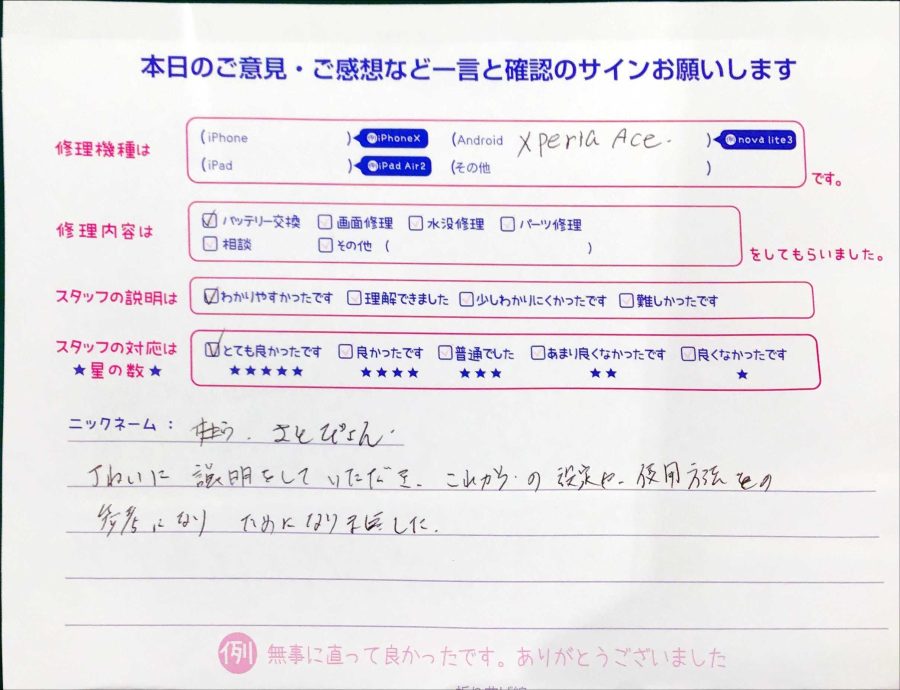 本日のご意見・ご感想など一言と確認のサインお願いします
修理機種は (iPhone ) iPhoneX (Android Xperia Ace. ) nova lite3
(iPad ) iPad Air2 (その他 ) です。
修理内容は バッテリー交換 画面修理 水没修理 パーツ修理
相談 その他 ( ) をしてもらいました。
スタッフの説明は わかりやすかったです 理解できました 少しわかりにくかったです 難しかったです
スタッフの対応は とても良かったです 良かったです 普通でした あまり良くなかったです 良くなかったです
★星の数★ ★★★★★ ★★★★ ★★★ ★★ ★
ニックネーム： さとぴょん.
ていねいに 説明をして いただき、これからの 設定や、使用方法などの
参考になり ためになりました.
例 無事に直って良かったです。ありがとうございました